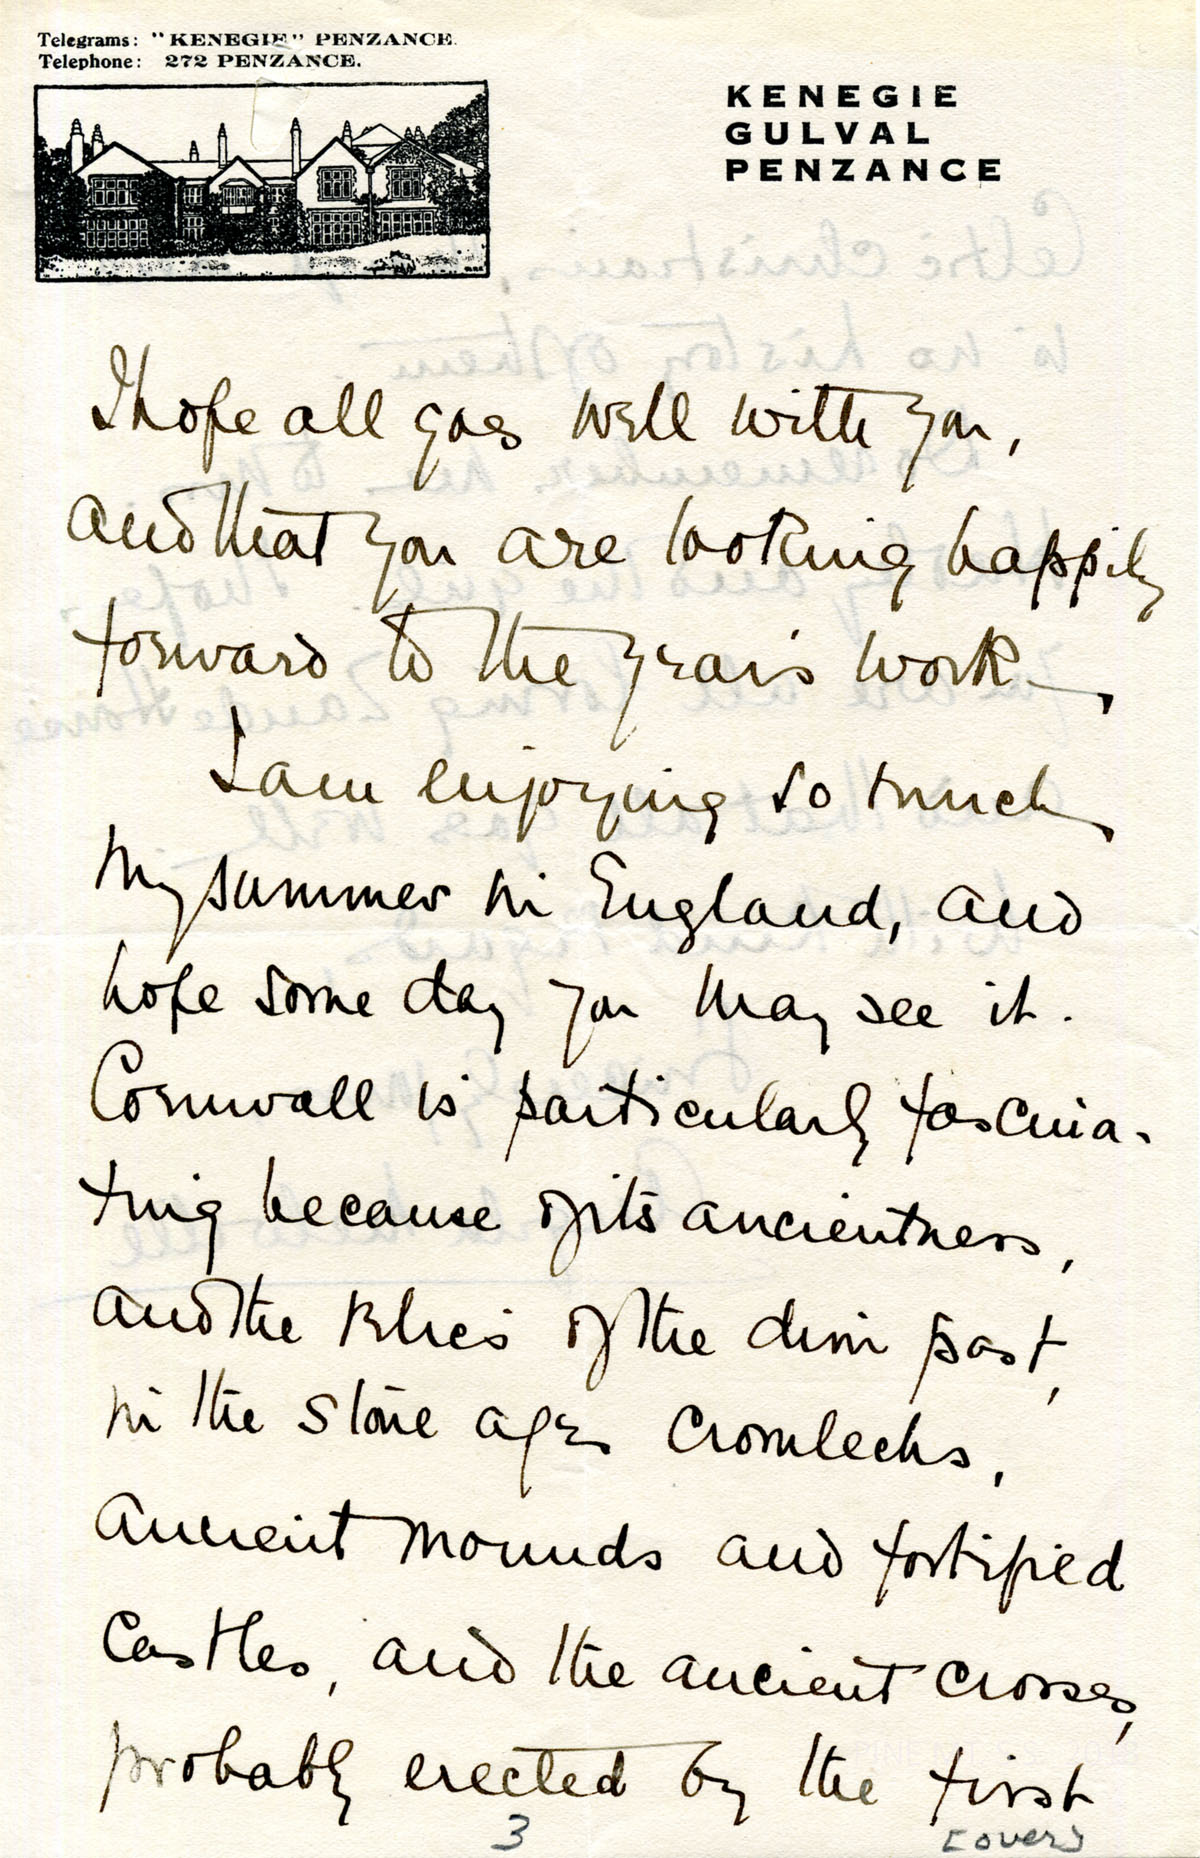 Telegrams: "KENEGIE" PENZANCE.
Telephone: 272 PENZANCE.
KENEGIE
GULVAL
PENZANCE
I hope all goes well with you,
and that you are looking happily
forward to the year's work,
I am enjoying so much
my summer in England, and
hope some day you may see it.
Cornwall is particularly fascina-
ting because of its ancientness,
and the relics of the dim past,
in the stone age cromlechs,
ancient mounds and fortified
castles, and the ancient crosses,
probably erected by the first
3
[over]